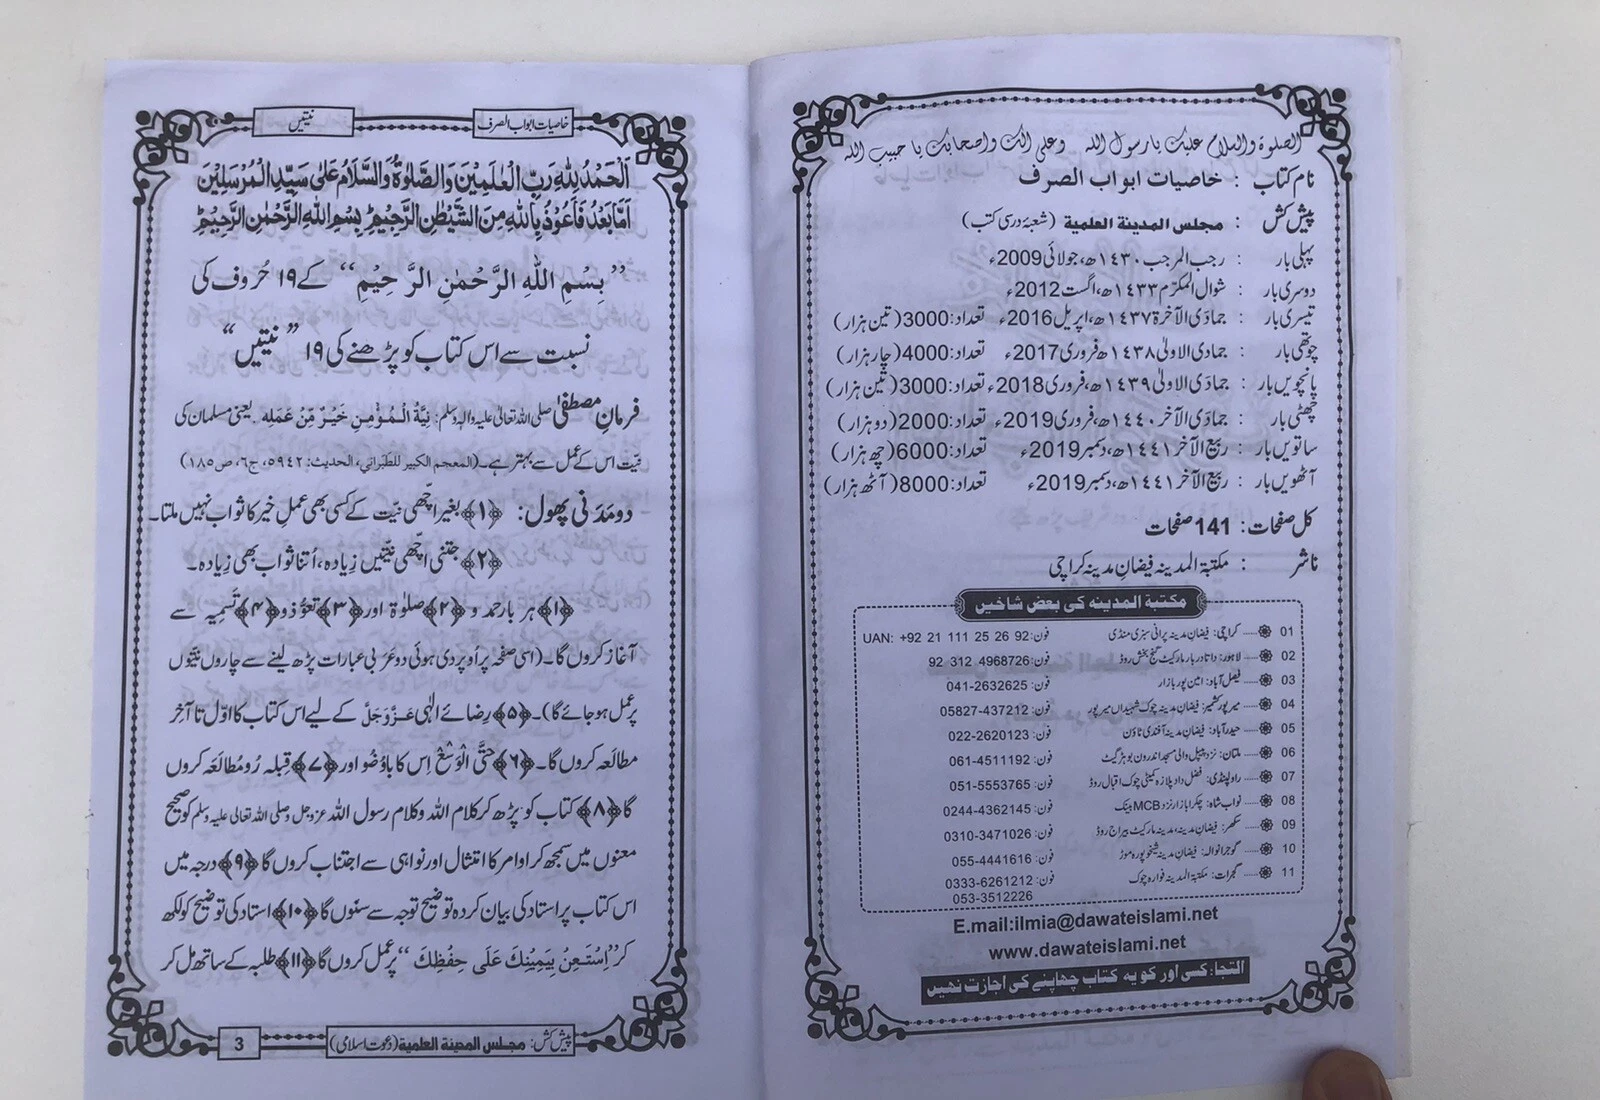 الصلوة والسلام علیک یارسول اللہ وعلی الک واصحابک یا حبیب اللہ
نام کتاب : خاصیات ابواب الصرف
پیش کش : مجلس المدینة العلمیة (شعبۂ درسی کتب)
پہلی بار : رجب المرجب ۱۴۳۰ھ، جولائی 2009ء
دوسری بار : شوال المکرّم ۱۴۳۳ھ، اگست 2012ء
تیسری بار : جمادَی الآخرۃ ۱۴۳۷ھ، اپریل 2016ء تعداد: 3000 (تین ہزار)
چوتھی بار : جمادی الاولیٰ ۱۴۳۸ھ فروری 2017ء تعداد: 4000 (چار ہزار)
پانچویں بار : جمادَی الاولیٰ ۱۴۳۹ھ، فروری 2018ء تعداد: 3000 (تین ہزار)
چھٹی بار : جمادَی الآخر ۱۴۴۰ھ، فروری 2019ء تعداد: 2000 (دو ہزار)
ساتویں بار : ربیع الآخر ۱۴۴۱ھ، دسمبر 2019ء تعداد: 6000 (چھ ہزار)
آٹھویں بار : ربیع الآخر ۱۴۴۱ھ، دسمبر 2019ء تعداد: 8000 (آٹھ ہزار)
کل صفحات : 141 صفحات
ناشر : مکتبة المدینہ فیضانِ مدینہ کراچی
مکتبة المدینہ کی بعض شاخیں
01 ..... کراچی: فیضانِ مدینہ پرانی سبزی منڈی فون: UAN: +92 21 111 25 26 92
02 ..... لاہور: داتا دربار مارکیٹ گنج بخش روڈ فون: 92 312 4968726
03 ..... فیصل آباد: امین پور بازار فون: 041-2632625
04 ..... میر پور کشمیر: فیضانِ مدینہ چوک شہیداں میر پور فون: 05827-437212
05 ..... حیدرآباد: فیضانِ مدینہ آفندی ٹاؤن فون: 022-2620123
06 ..... ملتان: نزد پیپل والی مسجد اندرون بوہڑ گیٹ فون: 061-4511192
07 ..... راولپنڈی: فضل داد پلازہ کمیٹی چوک اقبال روڈ فون: 051-5553765
08 ..... نواب شاہ: چکرا بازار نزد MCB بینک فون: 0244-4362145
09 ..... سکھر: فیضانِ مدینہ، مدینہ مارکیٹ بیراج روڈ فون: 0310-3471026
10 ..... گوجرانوالہ: فیضانِ مدینہ شیخوپورہ موڑ فون: 055-4441616
11 ..... گجرات: مکتبة المدینہ فوارہ چوک فون: 0333-6261212
053-3512226
E.mail:ilmia@dawateislami.net
www.dawateislami.net
التجا: کسی اور کو یہ کتاب چھاپنے کی اجازت نھیں
خاصیات ابواب الصرف نیتیں
اَلْحَمْدُ لِلّٰهِ رَبِّ الْعٰلَمِیْنَ وَالصَّلٰوةُ وَالسَّلَامُ عَلٰى سَیِّدِ الْمُرْسَلِیْنَ
اَمَّا بَعْدُ فَاَعُوْذُ بِاللّٰهِ مِنَ الشَّیْطٰنِ الرَّجِیْمِ بِسْمِ اللّٰهِ الرَّحْمٰنِ الرَّحِیْمِ
”بِسْمِ اللّٰهِ الرَّحْمٰنِ الرَّحِیْمِ“ کے ۱۹ حُروف کی
نسبت سے اس کتاب کو پڑھنے کی ۱۹ ”نیتیں“
فرمانِ مصطفیٰ صلی اللہ تعالیٰ علیہ والہٖ وسلم: نِیَّةُ الْمُؤْمِنِ خَیْرٌ مِّنْ عَمَلِه یعنی مسلمان کی
نیّت اس کے عمل سے بہتر ہے۔ (المعجم الکبیر للطبرانی، الحدیث: ۵۹۴۲، ج۶، ص۱۸۵)
دو مَدَنی پھول: ﴿۱﴾ بغیر اچّھی نیّت کے کسی بھی عملِ خیر کا ثواب نہیں ملتا۔
﴿۲﴾ جتنی اچّھی نیّتیں زِیادہ، اُتنا ثواب بھی زِیادہ۔
﴿۱﴾ ہر بار حمد و ﴿۲﴾ صلوٰۃ اور ﴿۳﴾ تعوُّذ و ﴿۴﴾ تَسمِیہ سے
آغاز کروں گا۔ (اسی صفحہ پر اُوپر دی ہوئی دو عَرَبی عبارات پڑھ لینے سے چاروں نیّتوں
پر عمل ہو جائے گا)۔ ﴿۵﴾ رِضائے الٰہی عَزَّوَجَلَّ کے لیے اس کتاب کا اوّل تا آخر
مطالعہ کروں گا۔ ﴿۶﴾ حتَّی الْوَسْعْ اِس کا باوُضُو اور ﴿۷﴾ قِبلہ رُو مُطالَعَہ کروں
گا ﴿۸﴾ کتاب کو پڑھ کر کلام اللہ و کلام رسول اللہ عزوجل وصلی اللہ تعالی علیہ وسلم کو صحیح
معنوں میں سمجھ کر اوامر کا امتثال اور نواہی سے اجتناب کروں گا ﴿۹﴾ درجہ میں
اس کتاب پر استاد کی بیان کردہ توضیح توجہ سے سنوں گا ﴿۱۰﴾ استاد کی توضیح کو لکھ
کر ”اِسْتَعِنْ بِیَمِیْنِكَ عَلَى حِفْظِكَ“ پر عمل کروں گا ﴿۱۱﴾ طلبہ کے ساتھ مل کر
پیش کش: مجلس المدینة العلمیة (دعوت اسلامی) 3